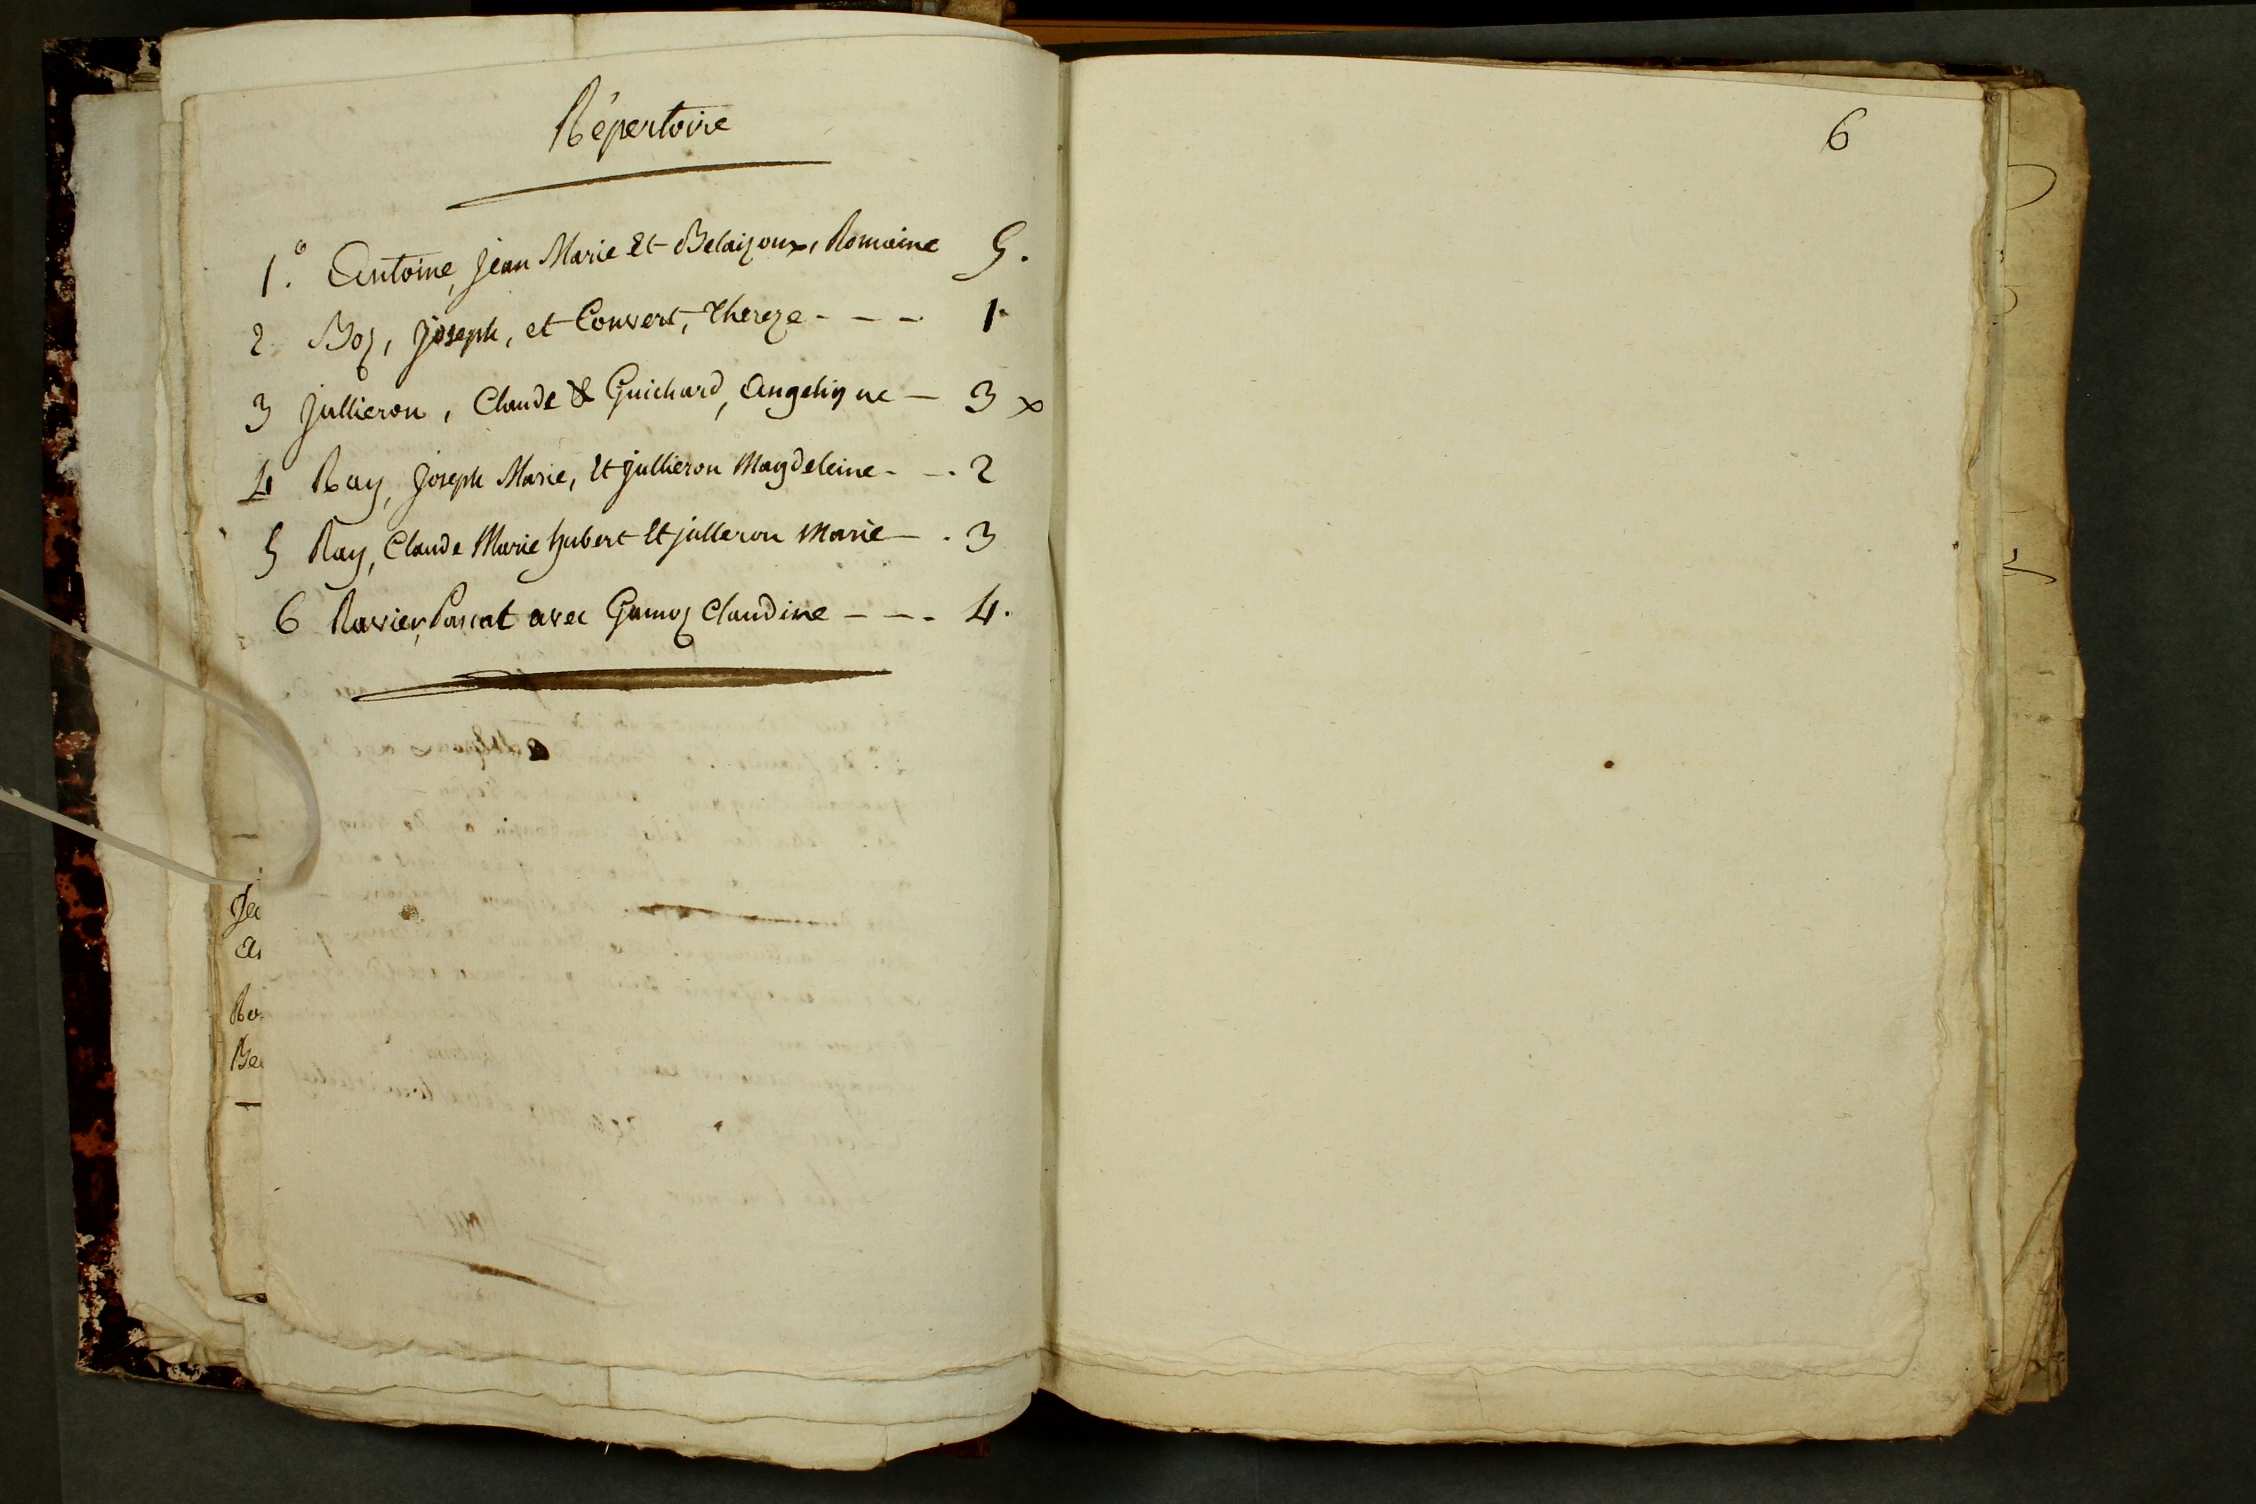 Répertoire
1.° Antoine, Jean Marie Et Belaizoux, Romaine 5.
2 Boz, Joseph, et Convert, Thereze - - - 1.
3 Jullieron, Claude & Guichard, Angelique - 3 x
4 Ray, Joseph Marie, Et jullieron Magdeleine - - . 2
5 Ray, Claude Marie hubert Et julleron Marie - . 3
6 Ravier, Pascal avec Gamoz Claudine - - - 4.
6